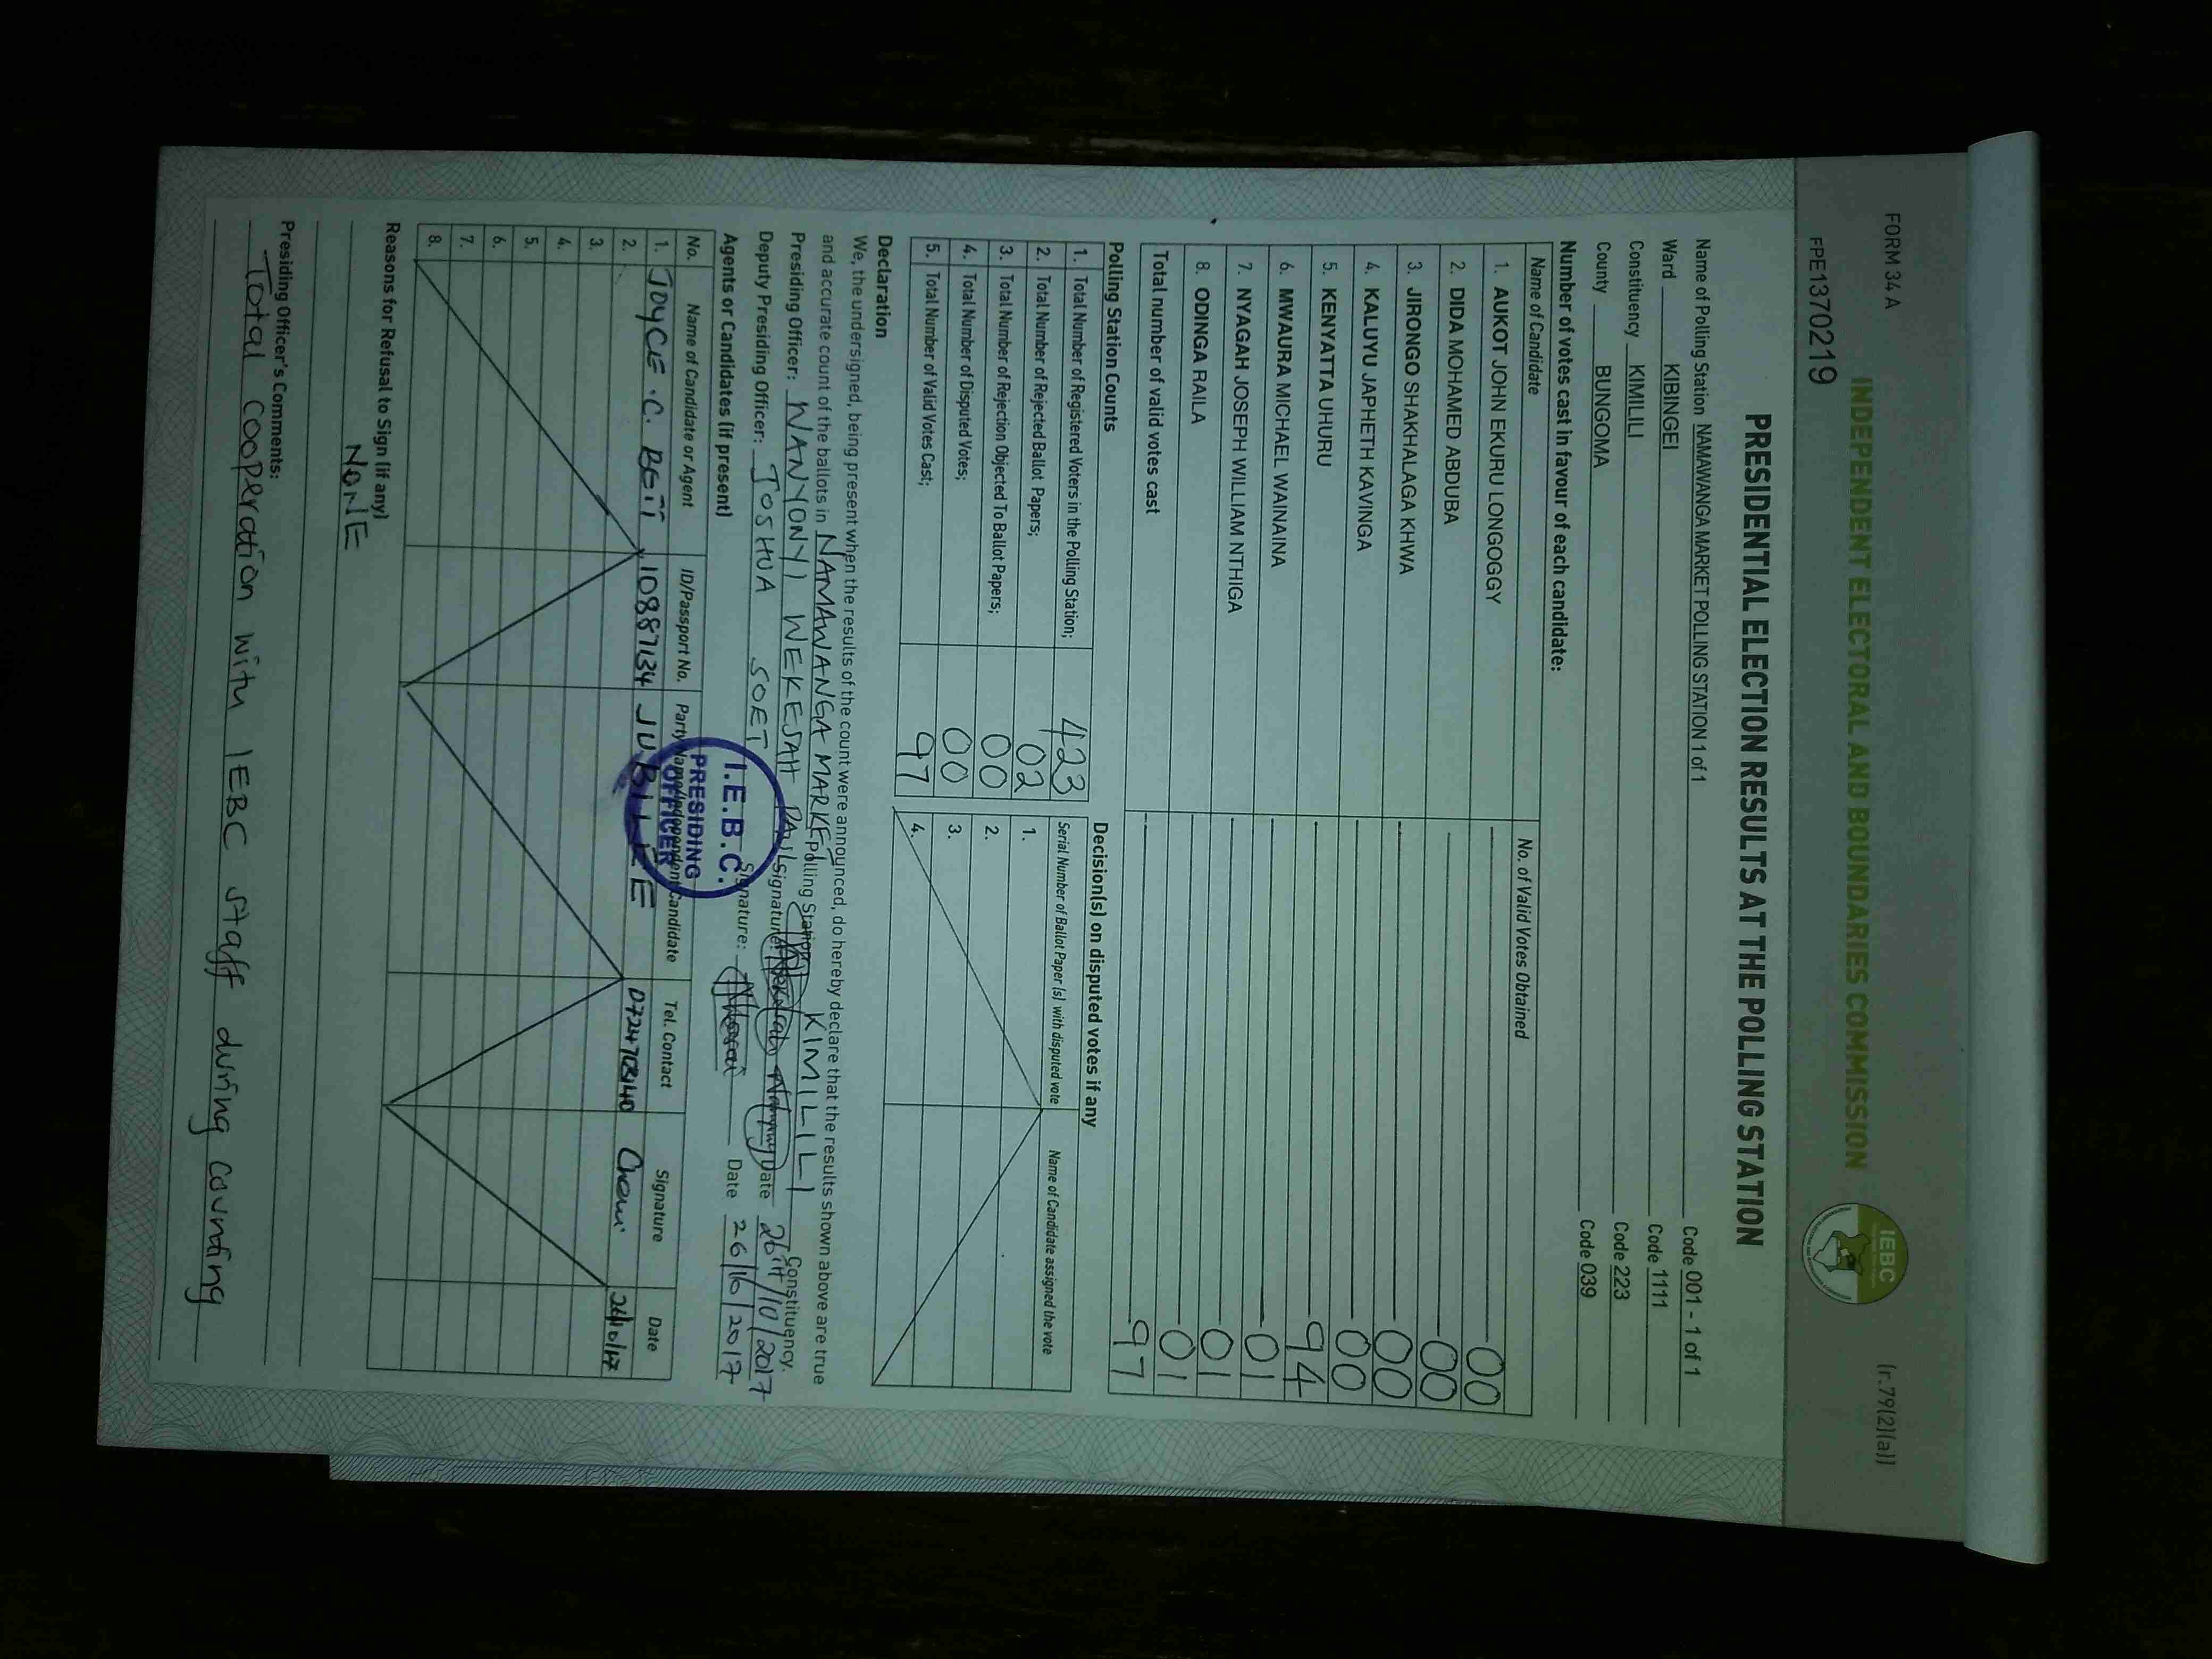 FORM 34 A
(r.79(2)(a))
INDEPENDENT ELECTORAL AND BOUNDARIES COMMISSION
IEBC
FPE1370219
PRESIDENTIAL ELECTION RESULTS AT THE POLLING STATION
Name of Polling Station NAMAWANGA MARKET POLLING STATION 1 of 1 Code 001 - 1 of 1
Ward KIBINGEI Code 1111
Constituency KIMILILI Code 223
County BUNGOMA Code 039
Number of votes cast in favour of each candidate:
Name of Candidate No. of Valid Votes Obtained
1. AUKOT JOHN EKURU LONGOGGY 00
2. DIDA MOHAMED ABDUBA 00
3. JIRONGO SHAKHALAGA KHWA 00
4. KALUYU JAPHETH KAVINGA 00
5. KENYATTA UHURU 94
6. MWAURA MICHAEL WAINAINA 01
7. NYAGAH JOSEPH WILLIAM NTHIGA 01
8. ODINGA RAILA 01
Total number of valid votes cast 97
Polling Station Counts
1. Total Number of Registered Voters in the Polling Station; 423
2. Total Number of Rejected Ballot Papers; 02
3. Total Number of Rejection Objected To Ballot Papers; 00
4. Total Number of Disputed Votes; 00
5. Total Number of Valid Votes Cast; 97
Decision(s) on disputed votes if any
Serial Number of Ballot Paper (s) with disputed vote Name of Candidate assigned the vote
1.
2.
3.
4.
Declaration
We, the undersigned, being present when the results of the count were announced, do hereby declare that the results shown above are true
and accurate count of the ballots in NAMAWANGA MARKET Polling Station KIMILILI Constituency.
Presiding Officer: WANYONYI WEKESAH PAUL Signature: Date 26TH/10/2017
Deputy Presiding Officer: JOSHUA SOET Signature: Date 26/10/2017
I.E.B.C.
PRESIDING
OFFICER
Agents or Candidates (if present)
No. Name of Candidate or Agent ID/Passport No. Party Name/Independent Candidate Tel. Contact Signature Date
1. JOYCE .C. 10887134 JUBILEE 26/10/17
2.
3.
4.
5.
6.
7.
8.
Reasons for Refusal to Sign (if any)
NONE
Presiding Officer's Comments:
Total cooperation with IEBC staff during counting